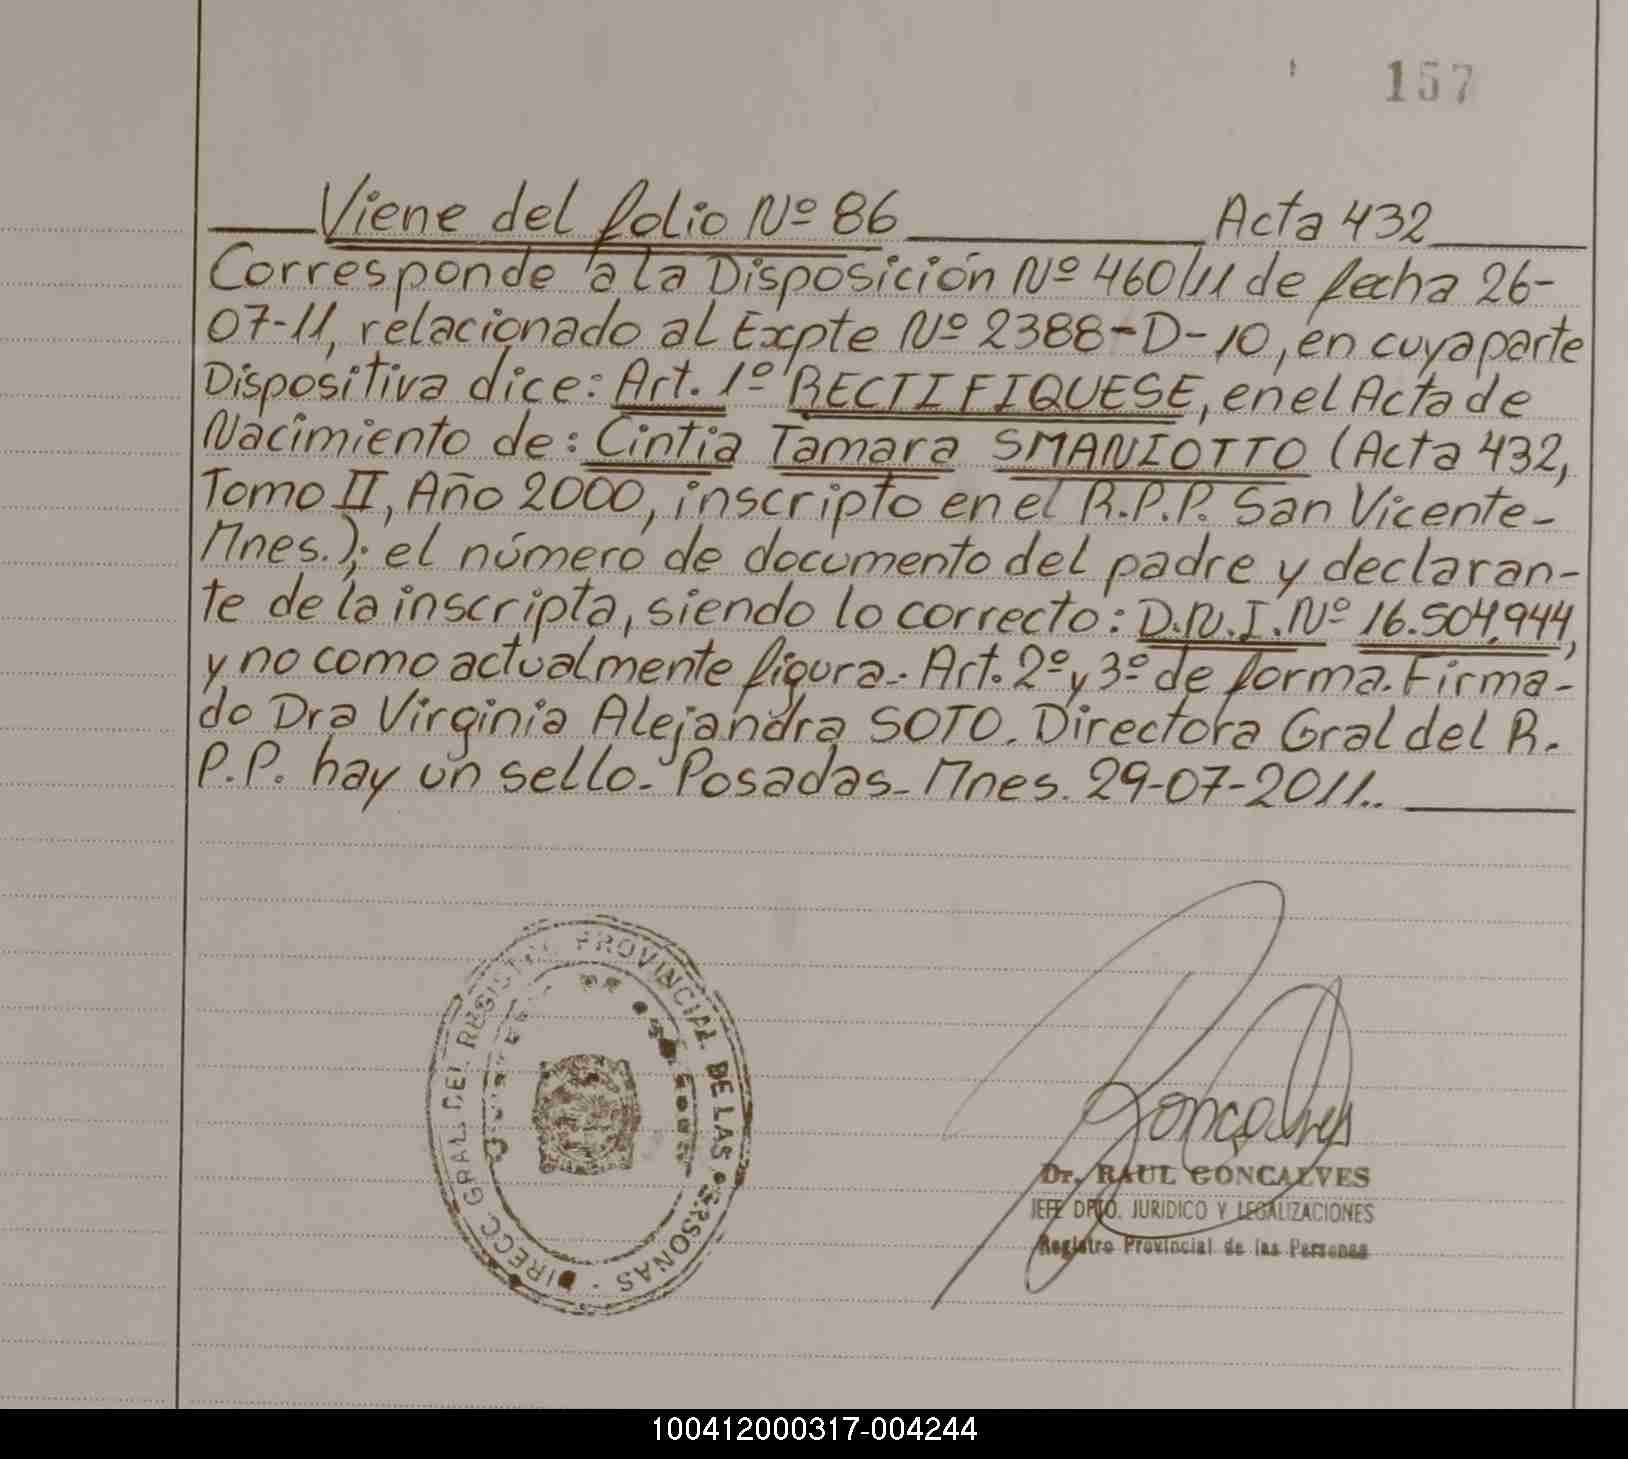 157
Viene del folio Nº 86 Acta 432
Corresponde a la Disposición Nº 460/11 de fecha 26-
07-11, relacionado al Expte Nº 2388-D-10, en cuya parte
Dispositiva dice: Art. 1º RECTIFIQUESE, en el Acta de
Nacimiento de: Cintia Tamara SMANIOTTO (Acta 432,
Tomo II, Año 2000, inscripto en el R.P.P. San Vicente-
Mnes.); el número de documento del padre y declaran-
te de la inscripta, siendo lo correcto: D.N.I. Nº 16.504.944,
y no como actualmente figura.- Art. 2º y 3º de forma. Firma-
do Dra Virginia Alejandra SOTO. Directora Gral del R.
P.P. hay un sello- Posadas- Mnes. 29-07-2011..
DIRECC. GRAL. DEL REGISTRO PROVINCIAL DE LAS PERSONAS
Goncalves
Dr. RAUL GONCALVES
JEFE DPTO. JURIDICO Y LEGALIZACIONES
Registro Provincial de las Personas
100412000317-004244